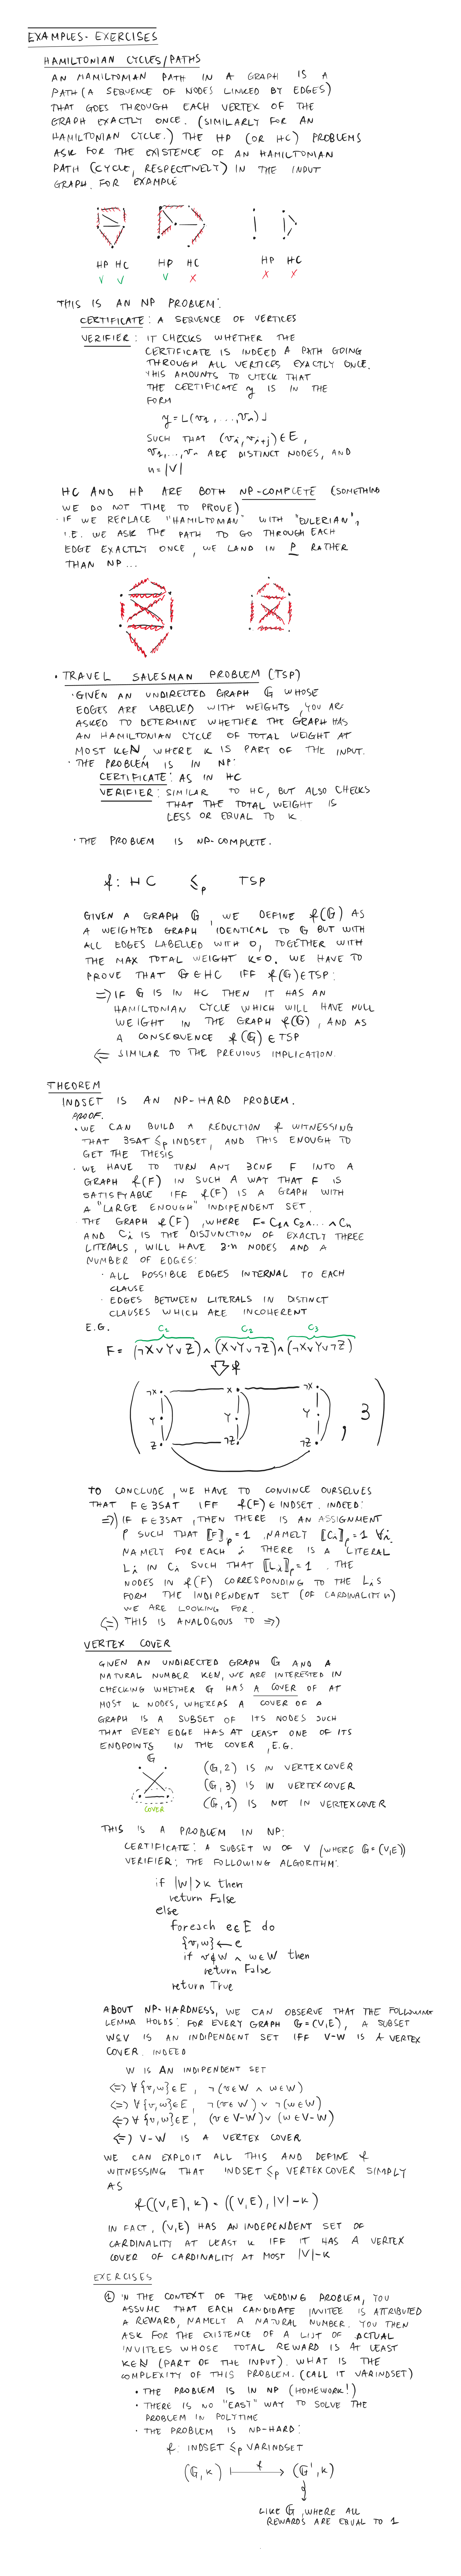 EXAMPLES - EXERCISES
HAMILTONIAN CYCLES/PATHS
AN HAMILTONIAN PATH IN A GRAPH IS A
PATH (A SEQUENCE OF NODES LINKED BY EDGES)
THAT GOES THROUGH EACH VERTEX OF THE
GRAPH EXACTLY ONCE. (SIMILARLY FOR AN
HAMILTONIAN CYCLE.) THE HP (OR HC) PROBLEMS
ASK FOR THE EXISTENCE OF AN HAMILTONIAN
PATH (CYCLE, RESPECTIVELY) IN THE INPUT
GRAPH. FOR EXAMPLE
HP HC HP HC HP HC
✓ ✓ ✓ X X X
THIS IS AN NP PROBLEM:
CERTIFICATE: A SEQUENCE OF VERTICES
VERIFIER: IT CHECKS WHETHER THE
CERTIFICATE IS INDEED A PATH GOING
THROUGH ALL VERTICES EXACTLY ONCE.
THIS AMOUNTS TO CHECK THAT
THE CERTIFICATE y IS IN THE
FORM
y = ⌊(v₁, ..., vₙ)⌋
SUCH THAT (vᵢ, vᵢ₊ⱼ) ∈ E,
v₁, ..., vₙ ARE DISTINCT NODES, AND
n = |V|
HC AND HP ARE BOTH NP-COMPLETE (SOMETHING
WE DO NOT TIME TO PROVE)
· IF WE REPLACE "HAMILTONIAN" WITH "EULERIAN",
I.E. WE ASK THE PATH TO GO THROUGH EACH
EDGE EXACTLY ONCE, WE LAND IN P RATHER
THAN NP...
· TRAVEL SALESMAN PROBLEM (TSP)
· GIVEN AN UNDIRECTED GRAPH G WHOSE
EDGES ARE LABELLED WITH WEIGHTS, YOU ARE
ASKED TO DETERMINE WHETHER THE GRAPH HAS
AN HAMILTONIAN CYCLE OF TOTAL WEIGHT AT
MOST K∈N, WHERE K IS PART OF THE INPUT.
· THE PROBLEM IS IN NP:
CERTIFICATE: AS IN HC
VERIFIER: SIMILAR TO HC, BUT ALSO CHECKS
THAT THE TOTAL WEIGHT IS
LESS OR EQUAL TO K.
· THE PROBLEM IS NP-COMPLETE.
f: HC ≤p TSP
GIVEN A GRAPH G, WE DEFINE f(G) AS
A WEIGHTED GRAPH IDENTICAL TO G BUT WITH
ALL EDGES LABELLED WITH 0, TOGETHER WITH
THE MAX TOTAL WEIGHT K=0. WE HAVE TO
PROVE THAT G∈HC IFF f(G)∈TSP:
⇒) IF G IS IN HC THEN IT HAS AN
HAMILTONIAN CYCLE WHICH WILL HAVE NULL
WEIGHT IN THE GRAPH f(G), AND AS
A CONSEQUENCE f(G) ∈ TSP
⇐ SIMILAR TO THE PREVIOUS IMPLICATION.
THEOREM
INDSET IS AN NP-HARD PROBLEM.
PROOF.
· WE CAN BUILD A REDUCTION f WITNESSING
THAT 3SAT ≤p INDSET, AND THIS ENOUGH TO
GET THE THESIS
· WE HAVE TO TURN ANY 3CNF F INTO A
GRAPH f(F) IN SUCH A WAY THAT F IS
SATISFYABLE IFF f(F) IS A GRAPH WITH
A "LARGE ENOUGH" INDIPENDENT SET.
· THE GRAPH f(F), WHERE F = C₁∧C₂∧...∧Cₙ
AND Cᵢ IS THE DISJUNCTION OF EXACTLY THREE
LITERALS, WILL HAVE 3·n NODES AND A
NUMBER OF EDGES:
· ALL POSSIBLE EDGES INTERNAL TO EACH
CLAUSE
· EDGES BETWEEN LITERALS IN DISTINCT
CLAUSES WHICH ARE INCOHERENT
E.G.
C₁ C₂ C₃
F = (¬X∨Y∨Z)∧(X∨Y∨¬Z)∧(¬X∨Y∨¬Z)
f
¬X X ¬X
Y Y Y , 3
Z ¬Z ¬Z
TO CONCLUDE, WE HAVE TO CONVINCE OURSELVES
THAT F∈3SAT IFF f(F)∈INDSET. INDEED:
⇒) IF F∈3SAT, THEN THERE IS AN ASSIGNMENT
ρ SUCH THAT ⟦F⟧ρ=1, NAMELY ⟦Cᵢ⟧ρ=1 ∀i.
NAMELY FOR EACH i THERE IS A LITERAL
Lᵢ IN Cᵢ SUCH THAT ⟦Lᵢ⟧ρ=1. THE
NODES IN f(F) CORRESPONDING TO THE LᵢS
FORM THE INDIPENDENT SET (OF CARDINALITY n)
WE ARE LOOKING FOR.
⇐) THIS IS ANALOGOUS TO ⇒)
VERTEX COVER
GIVEN AN UNDIRECTED GRAPH G AND A
NATURAL NUMBER K∈N, WE ARE INTERESTED IN
CHECKING WHETHER G HAS A COVER OF AT
MOST K NODES, WHEREAS A COVER OF A
GRAPH IS A SUBSET OF ITS NODES SUCH
THAT EVERY EDGE HAS AT LEAST ONE OF ITS
ENDPOINTS IN THE COVER, E.G.
G
(G,2) IS IN VERTEXCOVER
(G,3) IS IN VERTEXCOVER
(G,1) IS NOT IN VERTEXCOVER
COVER
THIS IS A PROBLEM IN NP:
CERTIFICATE: A SUBSET W OF V (WHERE G=(V,E))
VERIFIER: THE FOLLOWING ALGORITHM:
if |W|>k then
return False
else
foreach e∈E do
{v,w} ← e
if v∉W ∧ w∉W then
return False
return True
ABOUT NP-HARDNESS, WE CAN OBSERVE THAT THE FOLLOWING
LEMMA HOLDS: FOR EVERY GRAPH G=(V,E), A SUBSET
W⊆V IS AN INDIPENDENT SET IFF V-W IS A VERTEX
COVER. INDEED
W IS AN INDIPENDENT SET
⇔ ∀{v,w}∈E, ¬(v∈W ∧ w∈W)
⇔ ∀{v,w}∈E, ¬(v∈W) ∨ ¬(w∈W)
⇔ ∀{v,w}∈E, (v∈V-W)∨(w∈V-W)
⇔ V-W IS A VERTEX COVER
WE CAN EXPLOIT ALL THIS AND DEFINE f
WITNESSING THAT INDSET ≤p VERTEXCOVER SIMPLY
AS
f((V,E),K) = ((V,E),|V|-K)
IN FACT, (V,E) HAS AN INDEPENDENT SET OF
CARDINALITY AT LEAST K IFF IT HAS A VERTEX
COVER OF CARDINALITY AT MOST |V|-K
EXERCISES
① IN THE CONTEXT OF THE WEDDING PROBLEM, YOU
ASSUME THAT EACH CANDIDATE INVITEE IS ATTRIBUTED
A REWARD, NAMELY A NATURAL NUMBER. YOU THEN
ASK FOR THE EXISTENCE OF A LIST OF ACTUAL
INVITEES WHOSE TOTAL REWARD IS AT LEAST
K∈N (PART OF THE INPUT). WHAT IS THE
COMPLEXITY OF THIS PROBLEM. (CALL IT VARINDSET)
· THE PROBLEM IS IN NP (HOMEWORK!)
· THERE IS NO "EASY" WAY TO SOLVE THE
PROBLEM IN POLYTIME
· THE PROBLEM IS NP-HARD:
f: INDSET ≤p VARINDSET
(G,K) ⟼ f (G',K)
LIKE G, WHERE ALL
REWARDS ARE EQUAL TO 1